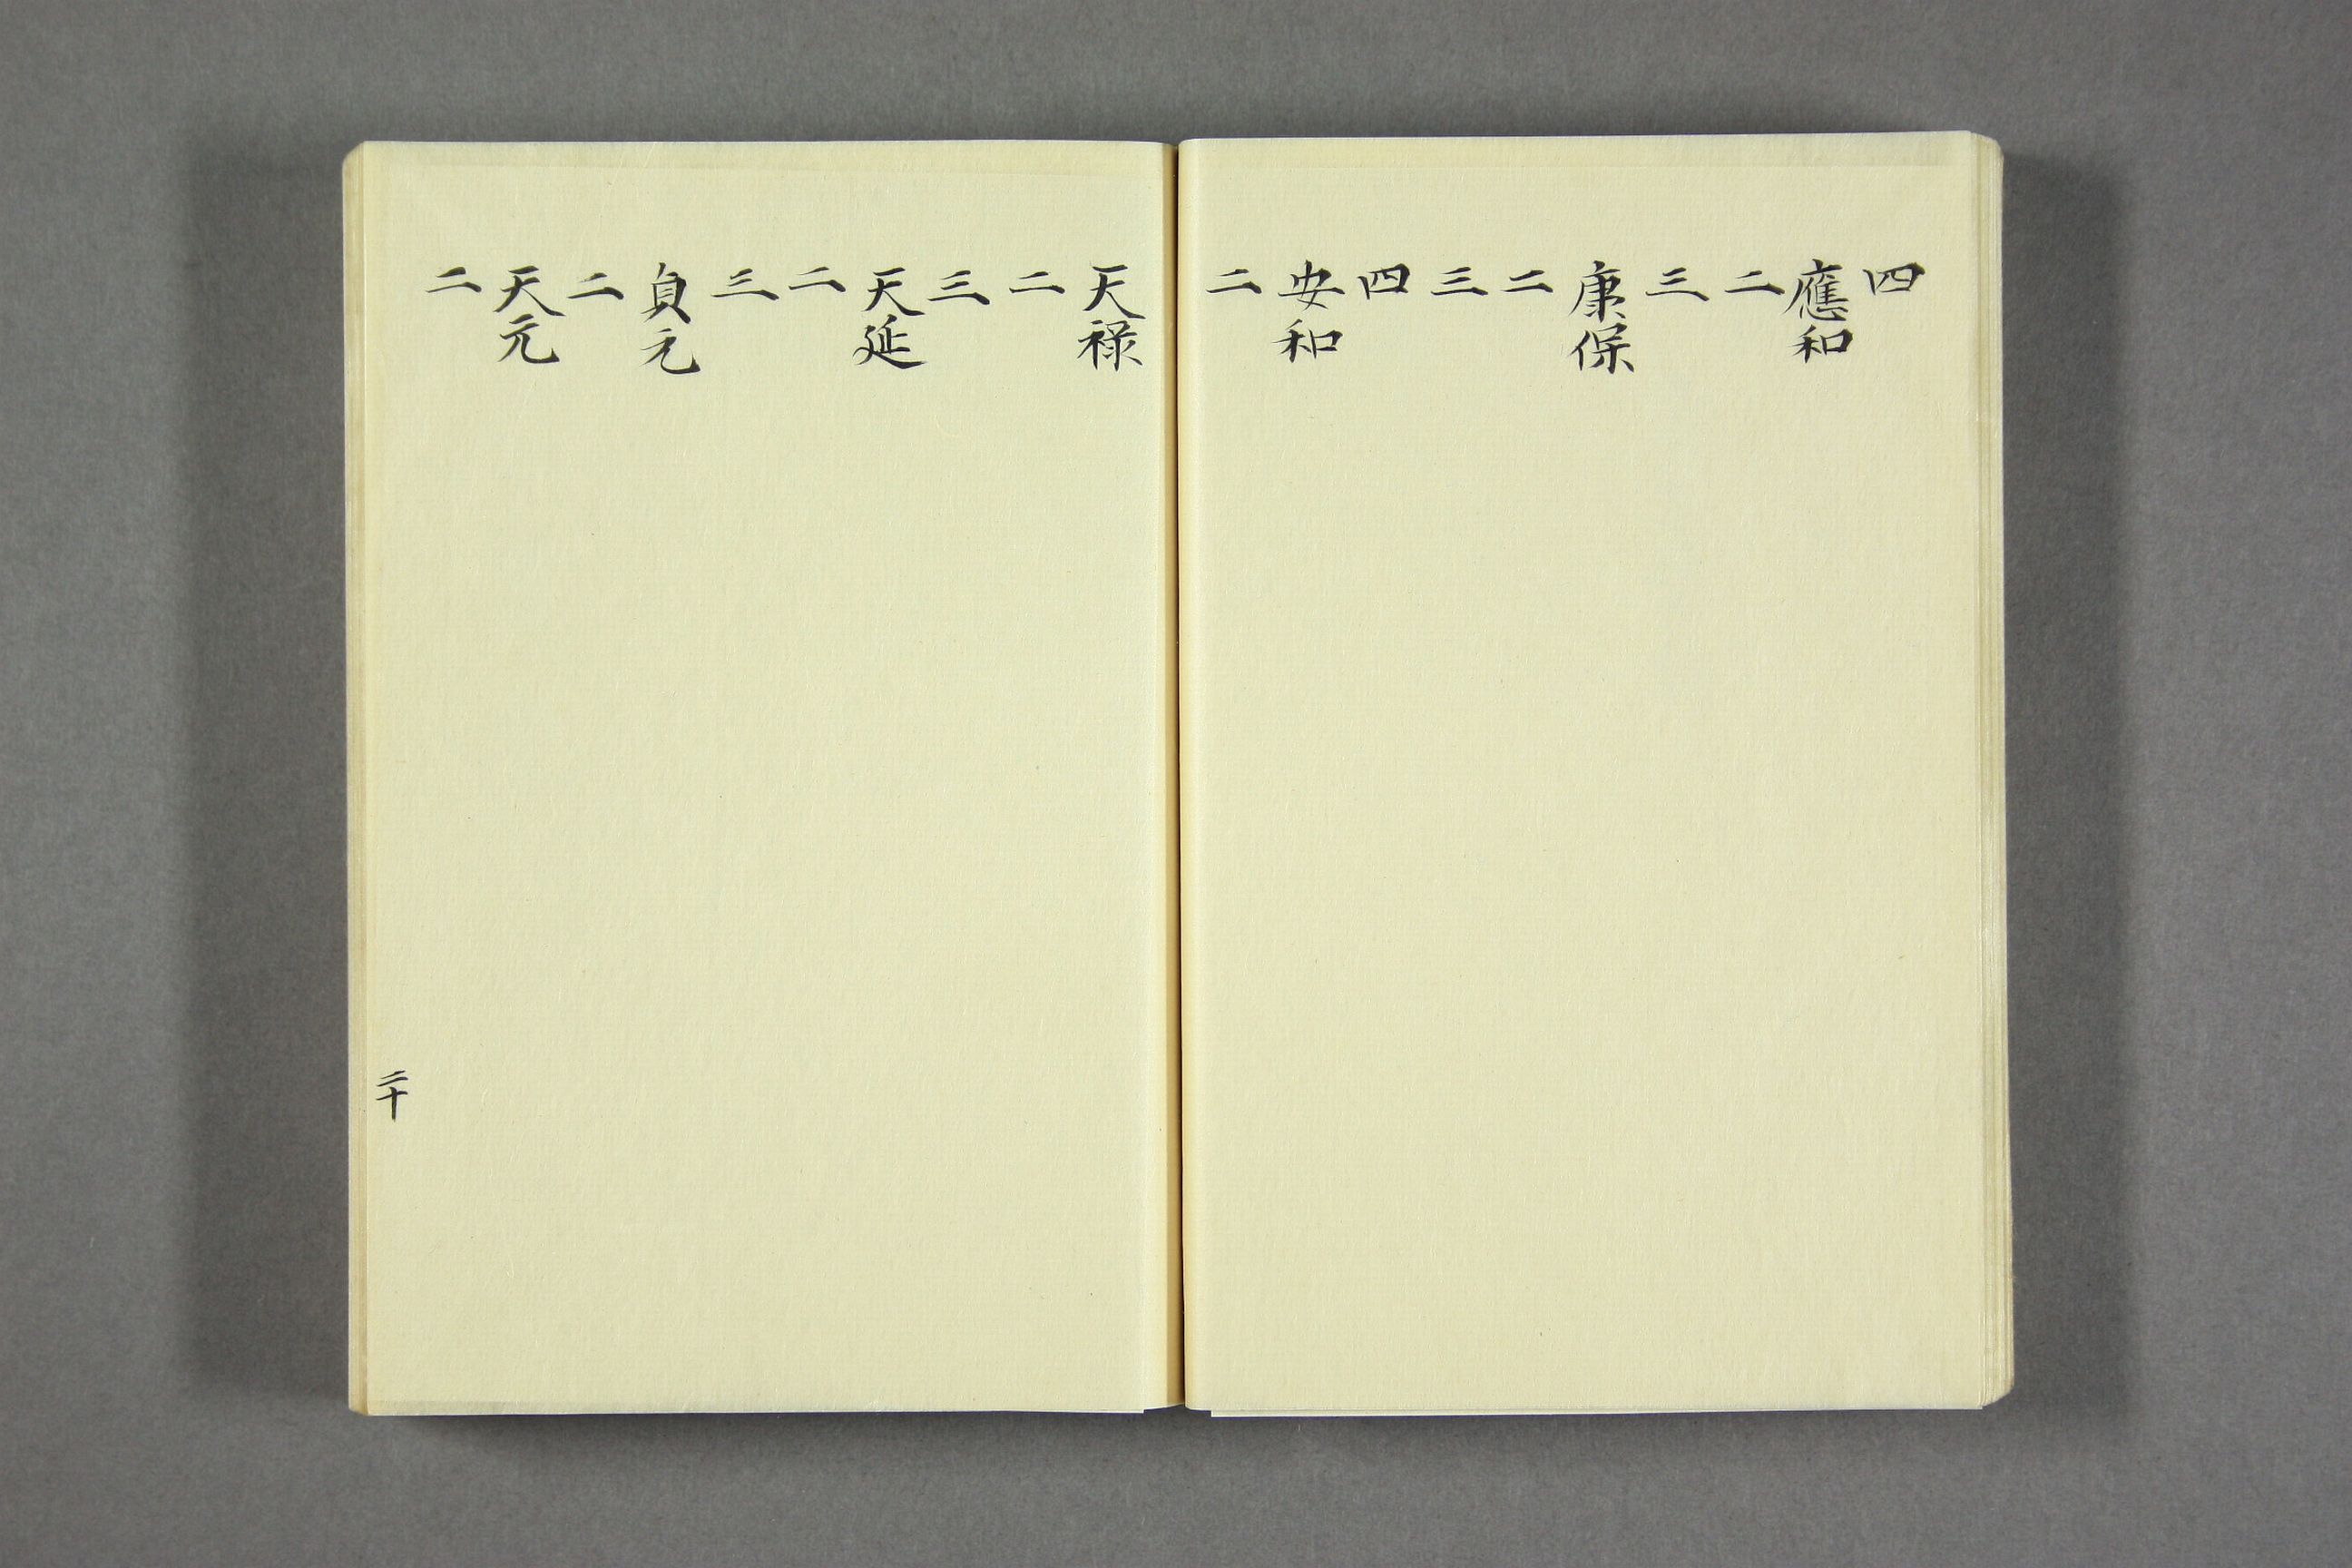 四
應和
二
三
康保
二
三
四
安和
二
天禄
二
三
天延
二
三
貞元
二
天元
二
二十